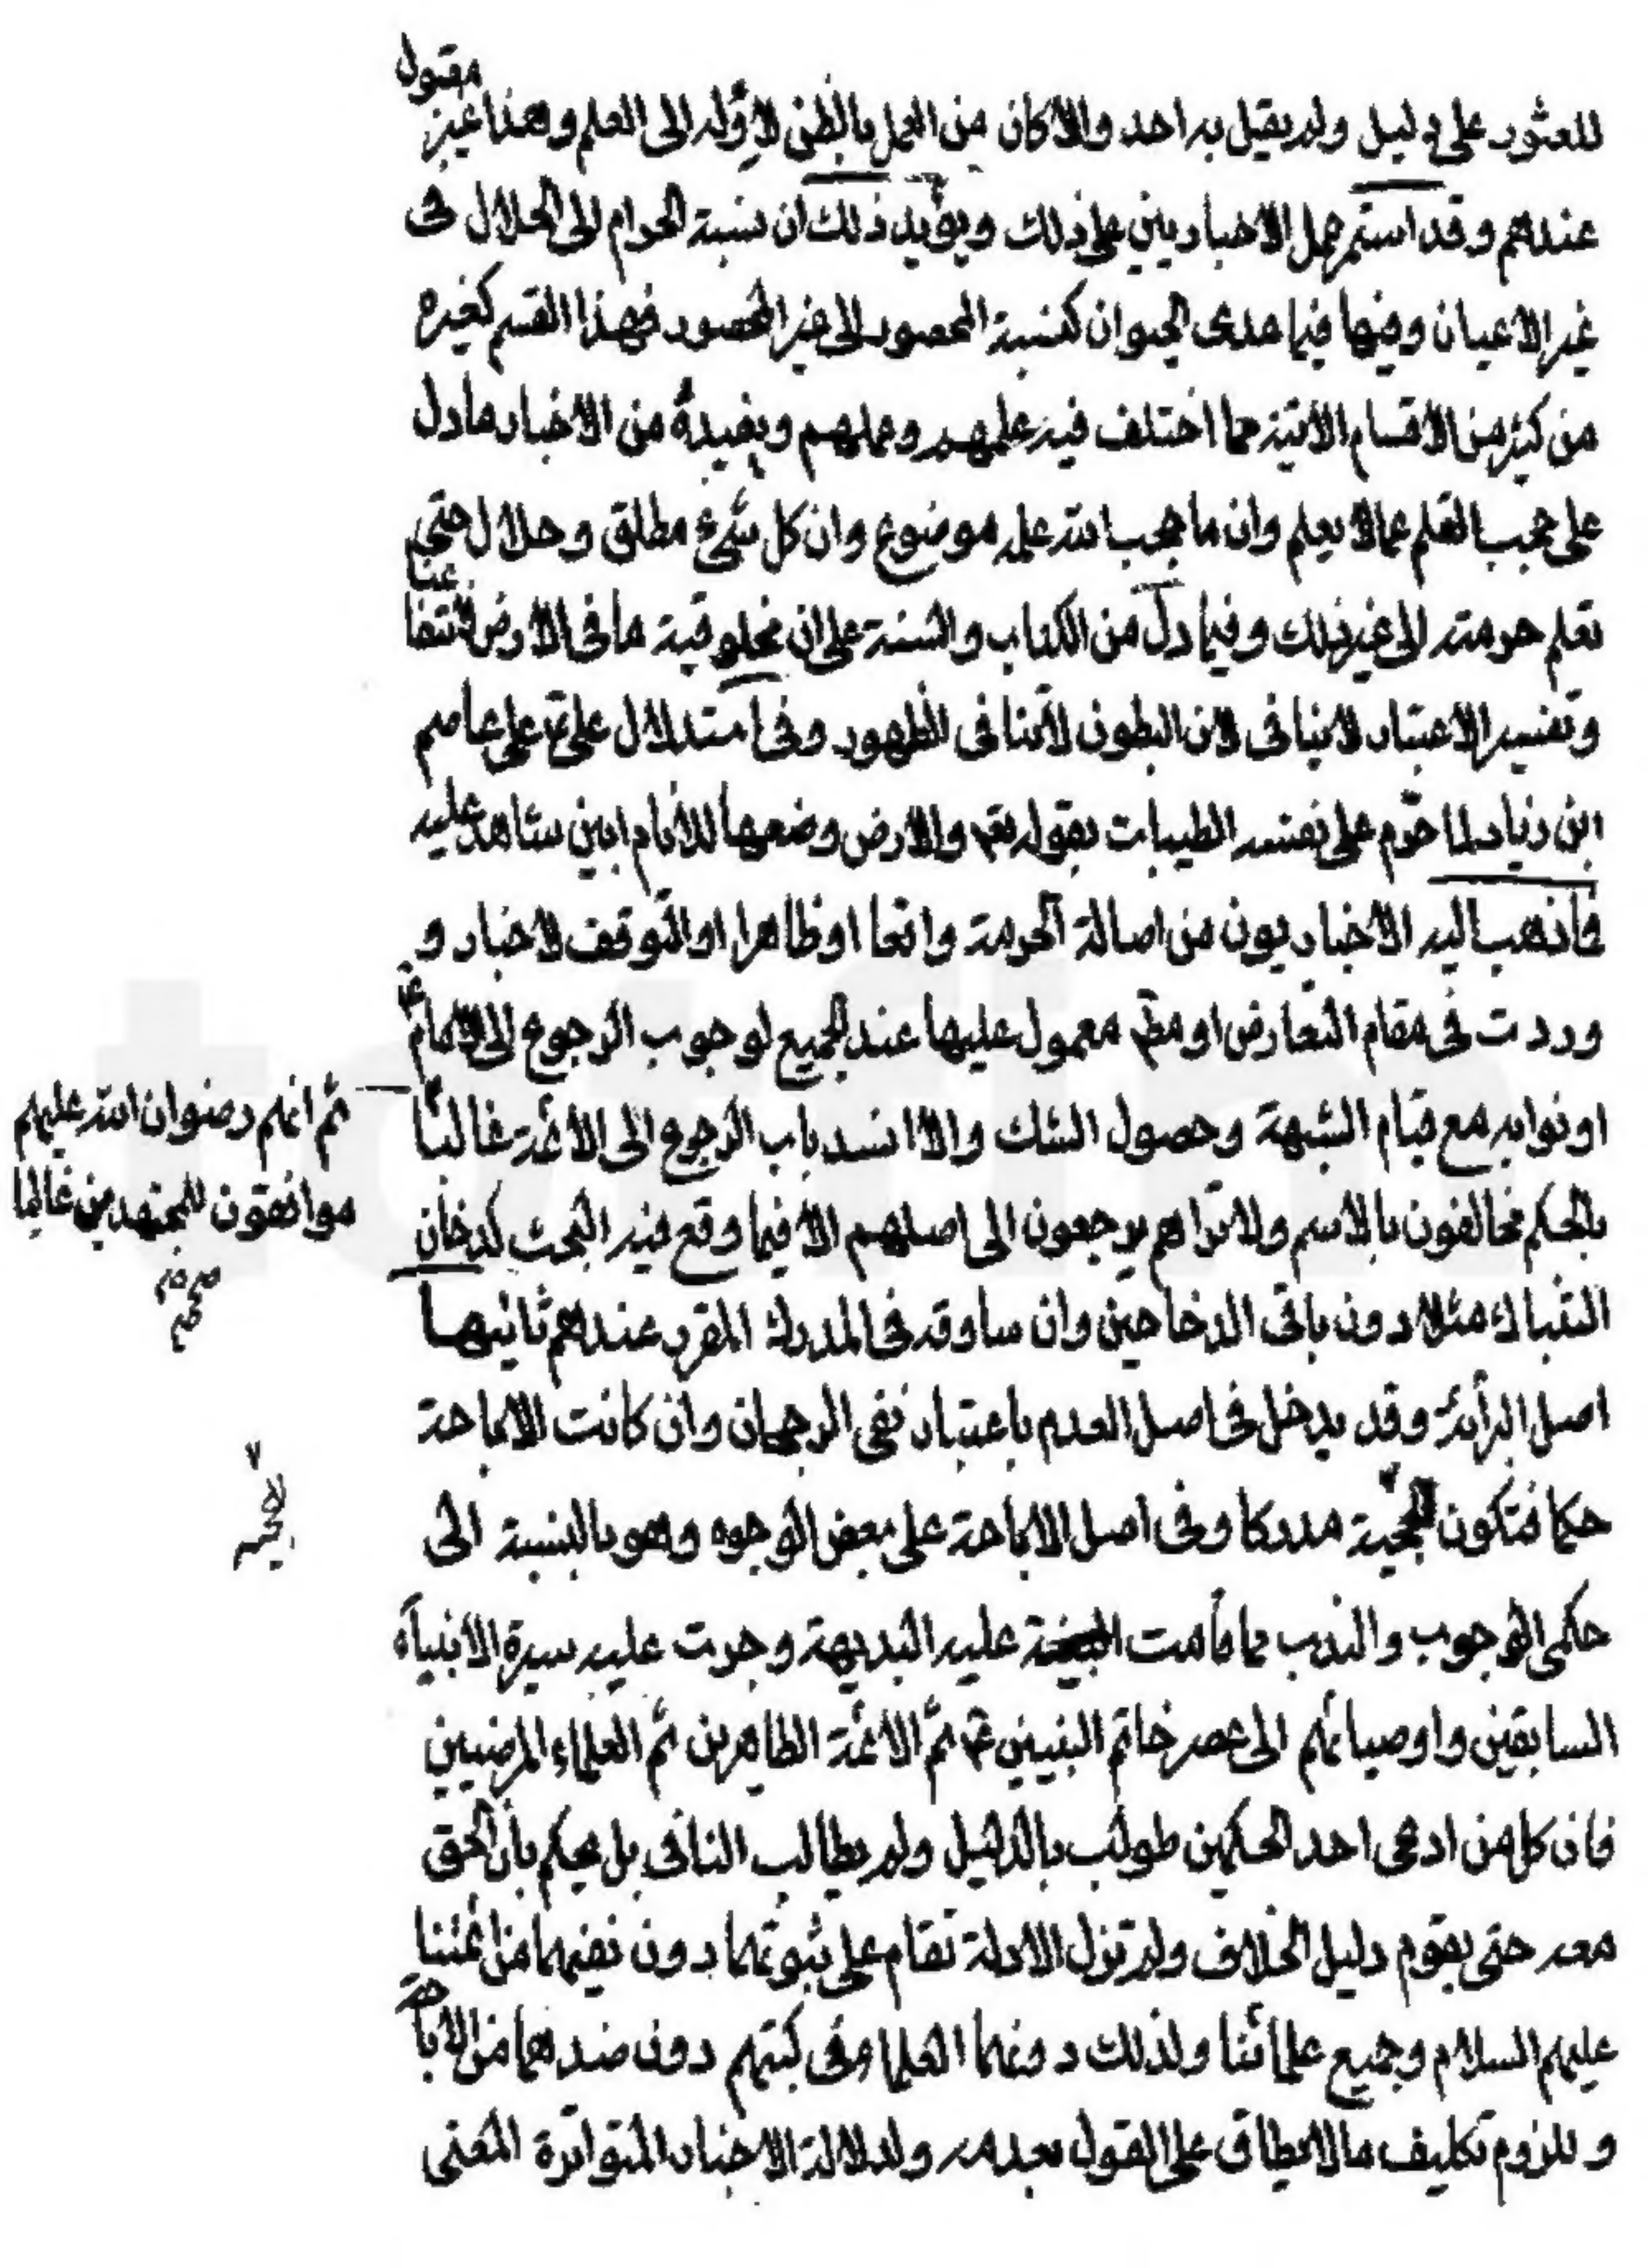 مقبول
للعثور على دليل ولم يقبل به احد والا كان من العمل بالظن لاوله الى العلم وهذا غير
عندهم وقد استمر عمل الاخباريين على ذلك ويؤيد ذلك ان نسبة الحرام الى الحلال فى
غير الاعيان وفيها فيما عدى الحيوان كنسبة المحصور الى غير المحصور فهذا القسم كغيره
من كثير من الاقسام الاتية مما اختلف فيه علمهم وعملهم ويفيده من الاخبار ما دل
على حجب العلم عما لا يعلم وان ما حجب الله علمه موضوع وان كل شىء مطلق وحلال حتى
تعلم حرمته الى غير ذلك وفيما دل من الكتاب والسنة على ان مخلوقية ما فى الارض لانتفا
عنا
وتفسير الاعتبار لا ينافى لان البطون لا تنافى الظهور وفى استدلال على ع على عاصم
ابن زياد لما حرم على نفسه الطيبات بقوله تعم والارض وضعها للانام ابين شاهد عليه
فما ذهب اليه الاخباريون من اصالة الحرمة واقعا او ظاهرا او التوقف لاخبار و
وردت فى مقام التعارض او مطم معمول عليها عند الجميع لوجوب الرجوع الى الامام ع
او نوابه مع قيام الشبهة وحصول الشك والا انسد باب الرجوع الى الائمة غالبا
ثم انهم رضوان الله عليهم
موافقون للمجتهدين غالبا
بالحكم مخالفون بالاسم ولا تراهم يرجعون الى اصلهم الا فيما وقع فيه البحث كدخان
التنباك مثلا دون باقى الدخاخين وان ساوته فى المدرك المقرر عندهم ثانيها
اصل البرائة وقد يدخل فى اصل العدم باعتبار نفى الرجحان وان كانت الاباحة
حكما فتكون الحجية مدركا وفى اصل الاباحة على بعض الوجوه وهو بالنسبة الى
حكمى الوجوب والندب مما قامت عليه البديهة وجرت عليه سيرة الانبياء
السابقين واوصيائهم الى عصر خاتم النبيين ثم الائمة الطاهرين ثم العلماء المرضيين
فان كل من ادعى احد الحكمين طولب بالدليل ولم يطالب النافى بل يحكم بان الحق
معه حتى يقوم دليل الخلاف ولم تزل الادلة تقام على ثبوتهما دون نفيهما من ائمتنا
عليهم السلام وجميع علمائنا ولذلك دونهما العلماء فى كتبهم دون ضدهما من الابا
حة
وللزوم تكليف ما لا يطاق على القول بعدمه ولدلالة الاخبار المتواترة المعنى